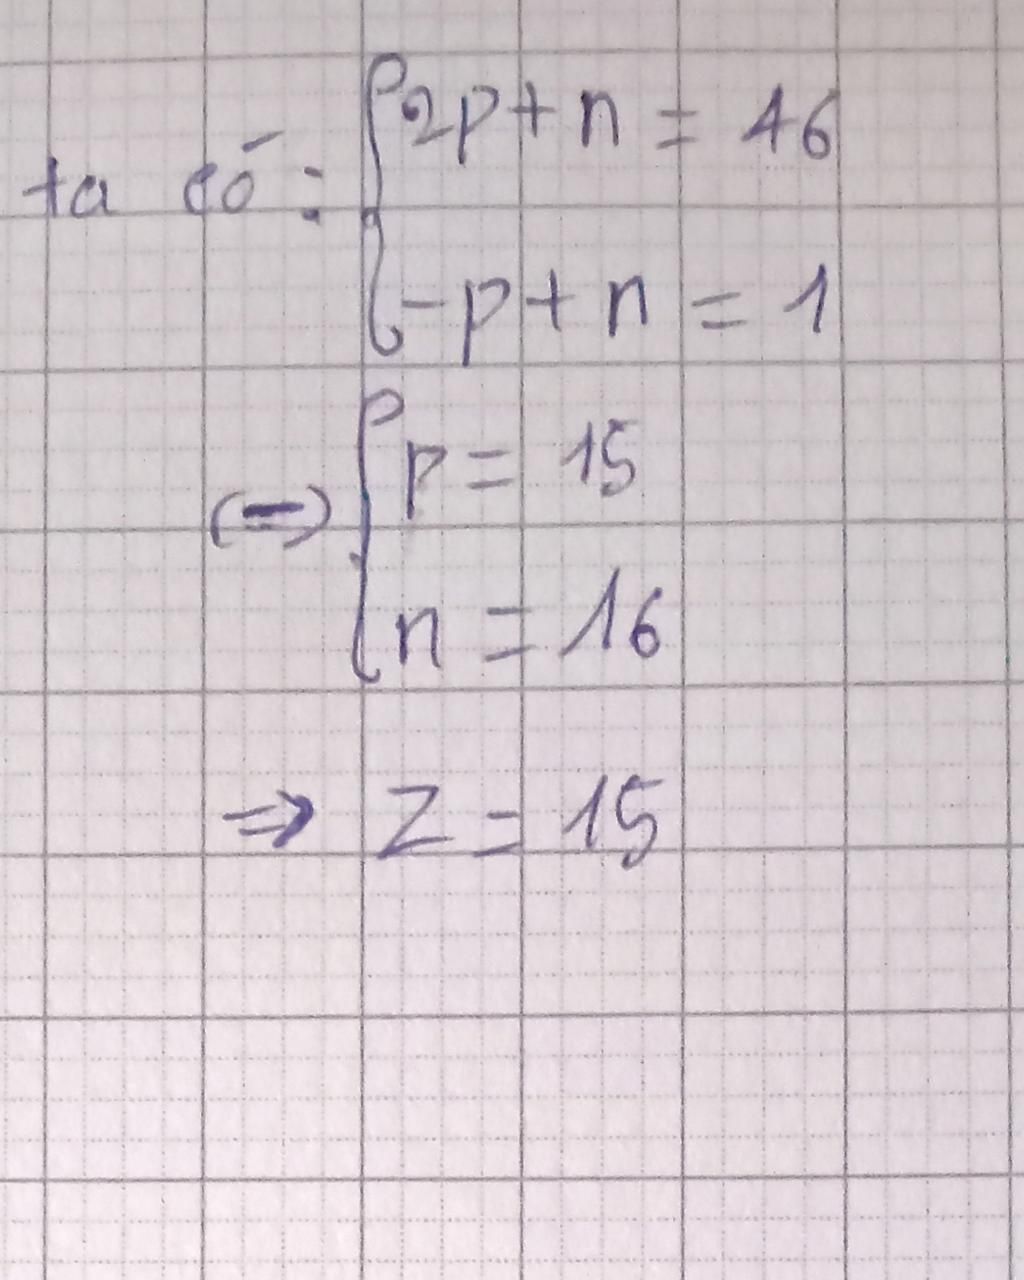 ta có: { 2p + n = 46
-p + n = 1
(=) { p = 15
n = 16
=> Z = 15